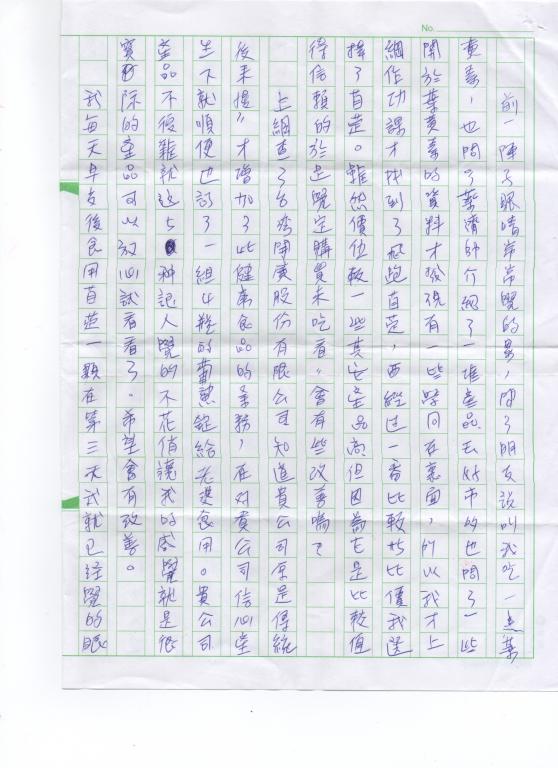 No.
前一陣子眼睛常常覺的累,問了朋友說叫我吃一點葉
黃素,也問了藥濟師介紹了一堆產品去好市的也問了一些
關於葉黃素的資料才發現有一些疑問在裏面,所以我才上
網作功課才找到了 ,西經過一番比較 比價我選
擇了 。雖然價位較一些其它產品高但因為它是比較值
得信賴的於是覺定購買來吃看"會有些改善嗎?
上網查了台灣 股份有限公司知道貴公司原是傳統
後來慢"才增加了些健康食品的業務,在對貴公司信心
生下就順便也訂了一組4瓶的 錠給老婆食用。貴公司
產品不複雜就這5種 人覺的不花俏讓我的感覺就是很
實際的產品可以放心試看看了。希望會有改善。
我每天早 後食用 一顆在第三天我就已經覺的眼